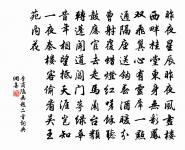 昨夜星辰昨夜風畫樓
西畔桂堂東身無彩鳳
雙飛翼心有靈犀一點
通隔座送鈎春酒暖分
曹射覆蠟燈紅嗟余聽
鼓應官去走馬蘭臺類
轉蓬聞道閶門萼綠華
昔年相望抵天涯豈知
一夜秦樓客偷看吳王
苑內花
李商隱無題二首詞典
網書